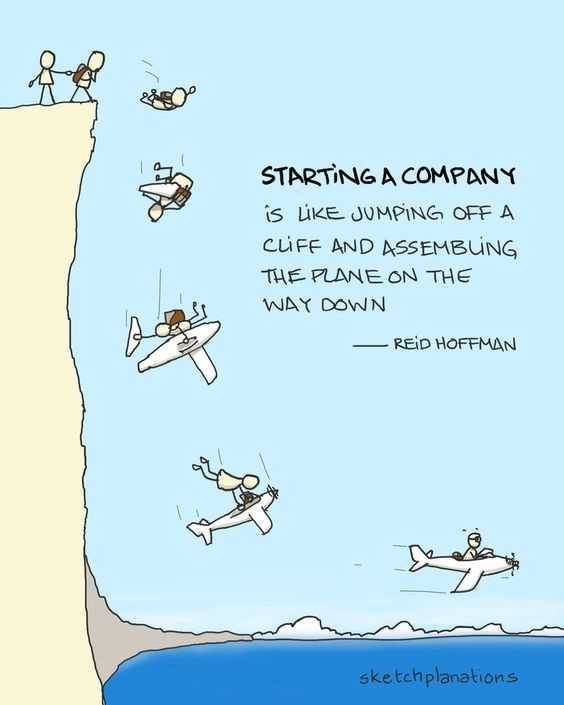 STARTING A COMPANY
is LIKE JUMPING OFF A
CLIFF AND ASSEMBLING
THE PLANE ON THE
WAY DOWN
— REID HOFFMAN
sketchplanations